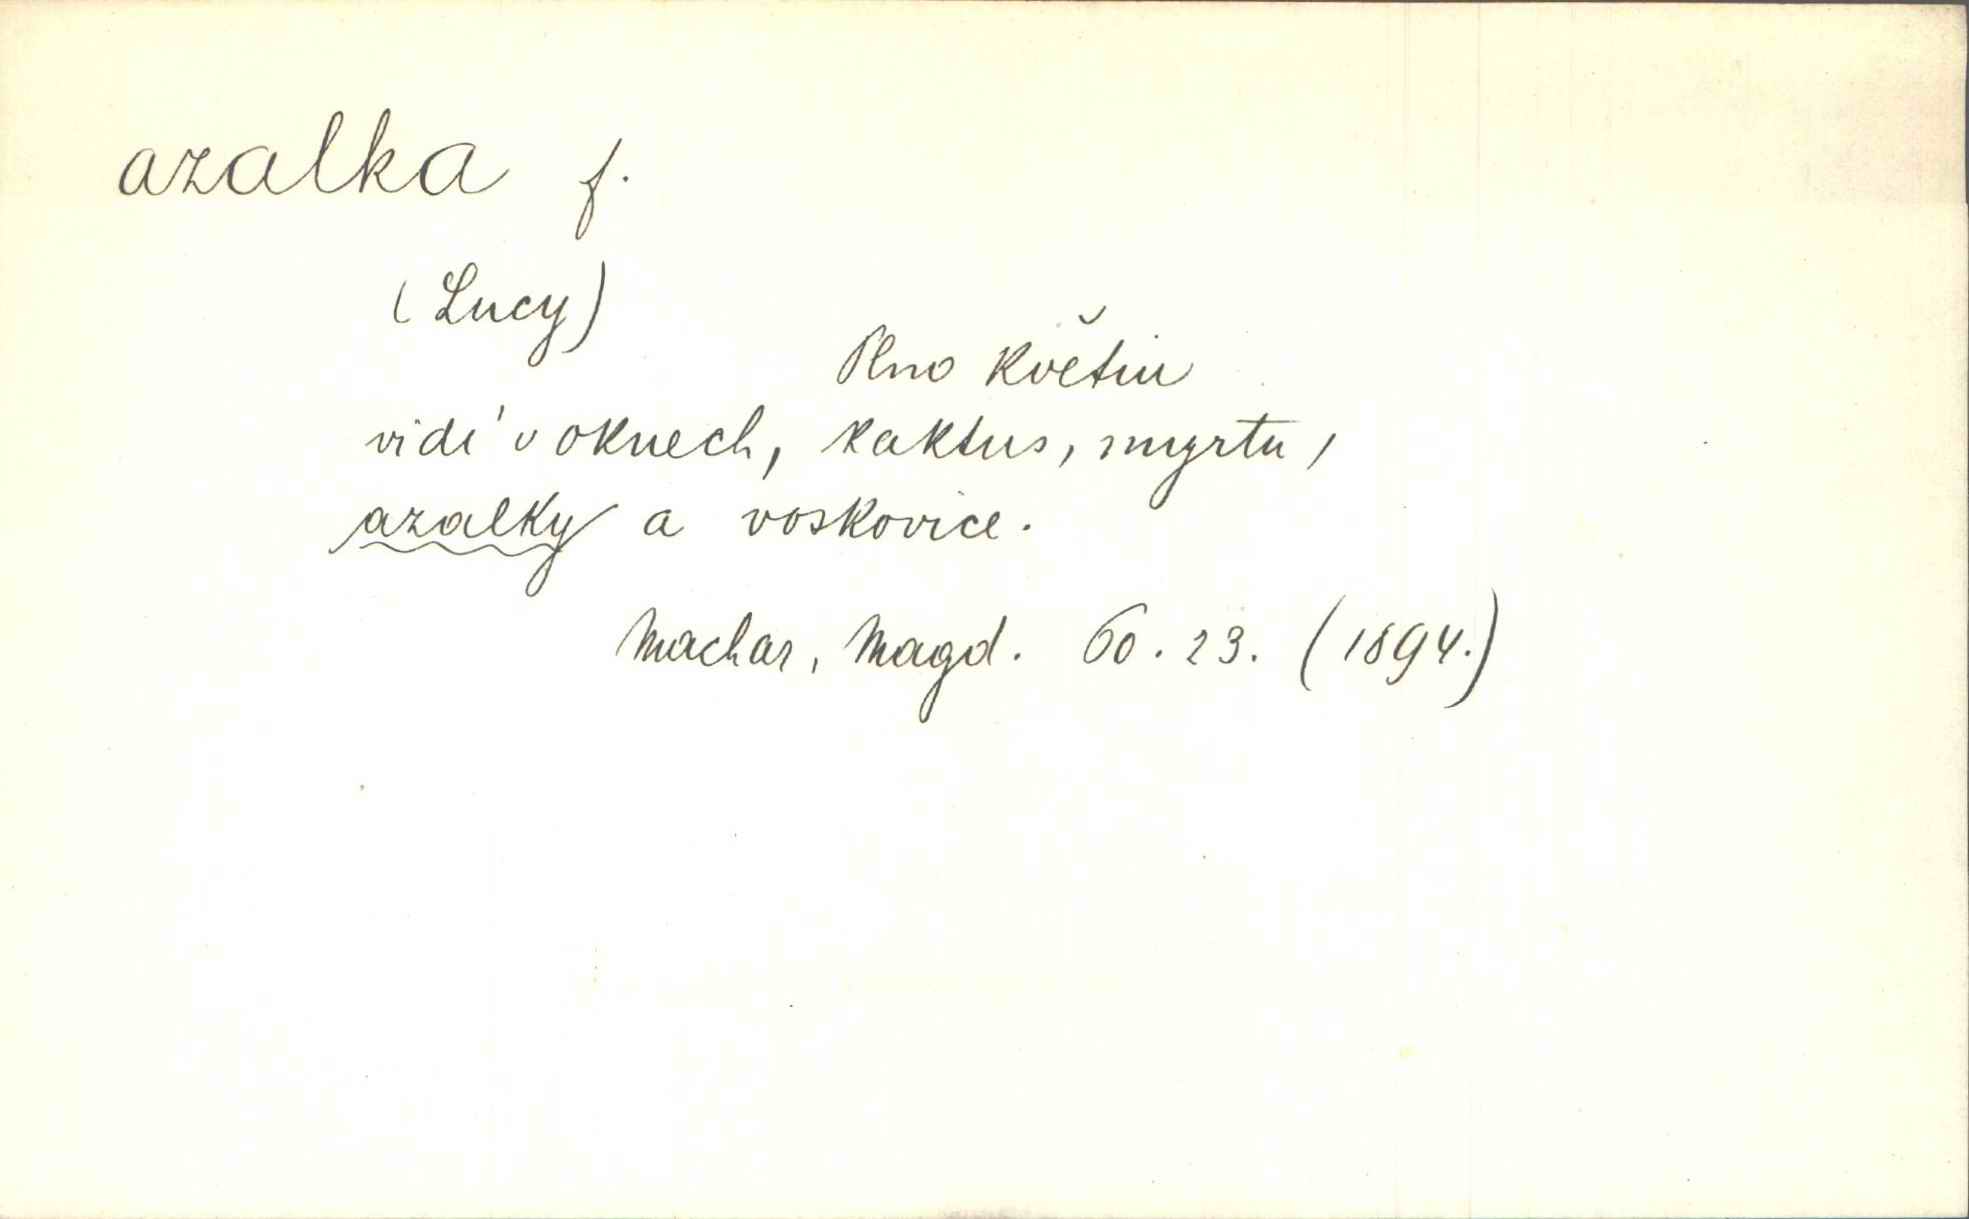 azalka f.
(Lucy)
Plno květin
vidí v oknech, kaktus, myrtu,
azalky a voskovice.
Machar, Magd. 60.23. (1894.)